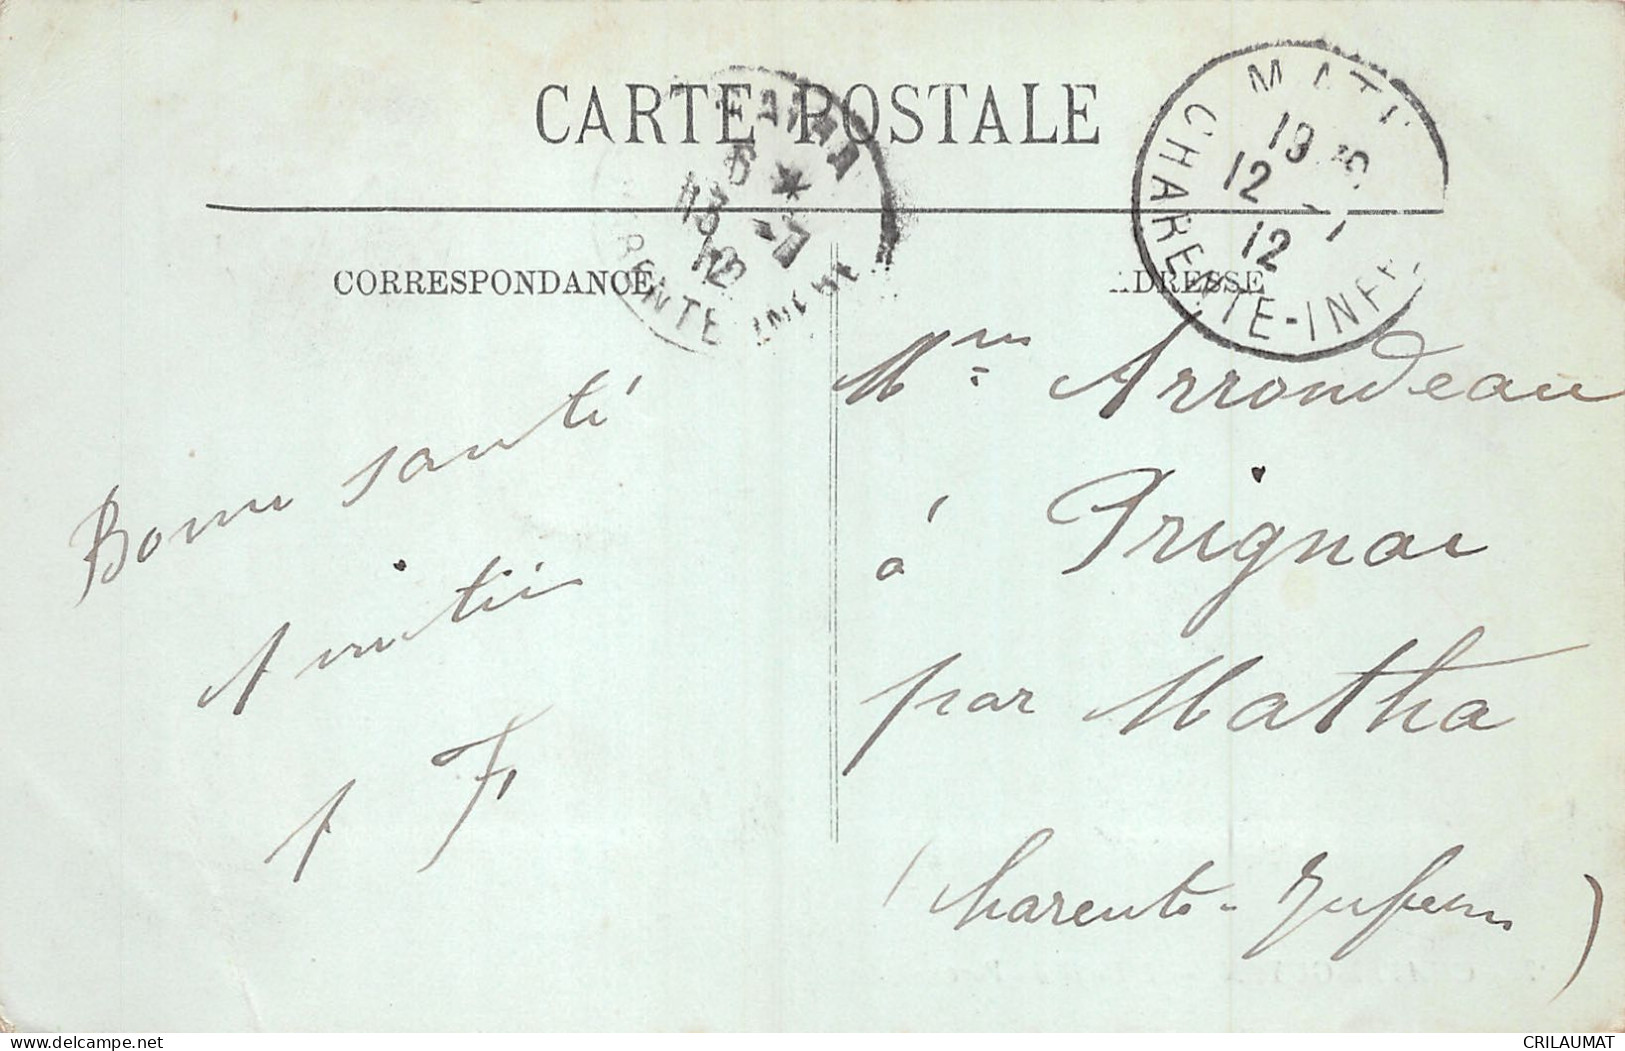 CARTE POSTALE
MATH
CHARENTE-INFRE
19 30
12 -7
12
6 *
13 -7
12
RENTE INFRE
CORRESPONDANCE
ADRESSE
Bonne santé
Amitié
A F
Mme Arrondeau
à Prignac
par Matha
(Charente-Inférieure)
www.delcampe.net
CRILAUMAT